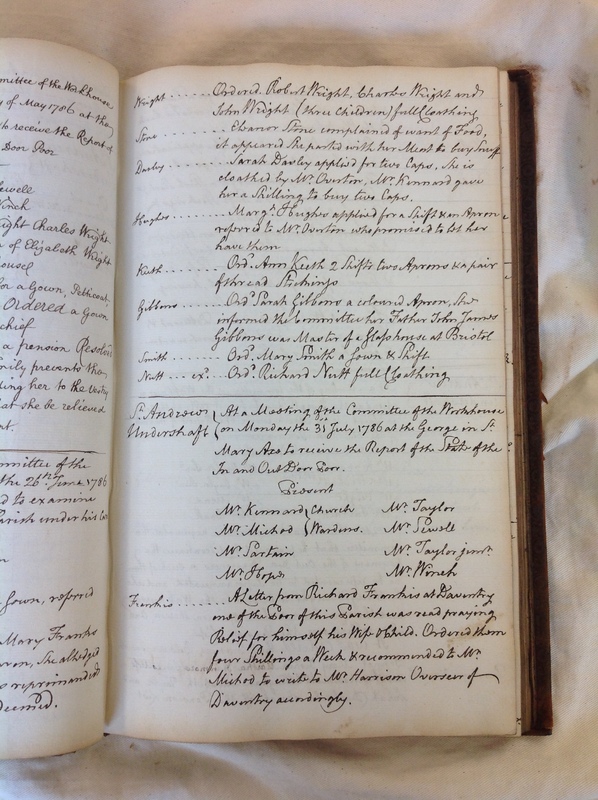 mmittee of the Workhouse
y of May 1786 at the
to receive the Report of
Door Poor
Sewell
Winch
Wright Charles Wright
of Elizabeth Wright
for a Gown, Petticoat,
Ordered a Gown
chief
a pension Resolved
mily prevents them
ing her to the vestry
that she be relieved
nt.
mmittee of the
the 26th June 1786
d to examine
Parish under his care
n
Gown, referred
Mary Franks
ron, She alledged
s reprimanded
deemed.
Wright ...... Ordered. Robert Wright, Charles Wright and
John Wright (three Children) full Cloathing
Stone ...... Eleanor Stone complained of want of Food,
it appeared She parted with her Meat to buy Snuff
Dasley ...... Sarah Dasley applied for two Caps, She is
cloathed by Mr. Overton, Mr. Kennard gave
her a Shilling to buy two Caps.
Hughes ...... Margt. Hughes applied for a Shift & an Apron
referred to Mr. Overton who promised to let her
have them
Keith ...... Ord. Ann Keith 2 Shifts two Aprons & a pair
of thread Stockings
Gibbons ...... Ord. Sarah Gibbons a coloured Apron, She
informed the Committee her Father John James
Gibbons was Master of a Glasshouse at Bristol
Smith ...... Ord. Mary Smith a Gown & Shift
Nutt .... ex. .. Ord. Richard Nutt full Cloathing
St. Andrew Undershaft
At a Meeting of the Committee of the Workhouse
on Monday the 31st July 1786 at the George in St.
Mary Axe to receive the Report of the State of the
In and Out Door Poor.
Present
Mr. Kennard } Church Mr. Taylor
Mr. Michod } Wardens. Mr. Sewell
Mr. Sartain Mr. Taylor junr.
Mr. Hope Mr. Winch
Frankis ...... A Letter from Richard Frankis at Daventry
one of the Poor of this Parish was read praying
Releif for himself his Wife & Child. Ordered them
four Shillings a Week & recommended to Mr.
Michod to write to Mr. Harrison Overseer of
Daventry accordingly.